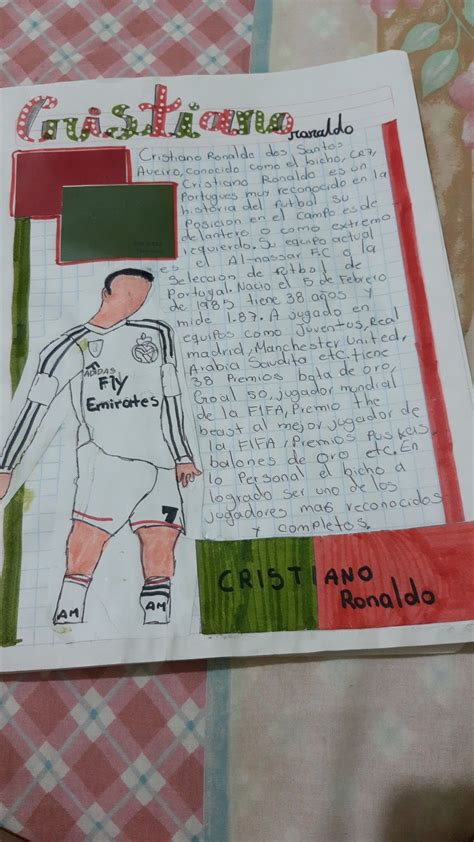 Cristiano
Ronaldo
Cristiano Ronaldo dos Santos
Aveiro, conocido como el bicho, CR7,
Cristiano Ronaldo es un
Portugues muy reconocido en la
historia del futbol su
Posicion en el campo es de
delantero o como extremo
izquierdo. Su equipo actual
es el Al-nassar FC o la
Seleccion de Futbol de
Portugal. Nacio el 5 de Febrero
de 1985 tiene 38 años y
mide 1.87. A jugado en
equipos como Juventos, Real
madrid, Manchester United,
Arabia Saudita etc. tiene
38 Premios bota de oro,
Goal 50, jugador mundial
de la FIFA, Premio the
beast al mejor jugador de
la FIFA, Premios Puskas,
balones de Oro etc. En
lo Personal el bicho a
logrado ser uno de los
jugadores mas reconocidos
y completos.
ADDAS
Fly
Emirates
7
AM
AM
CRISTIANO
Ronaldo